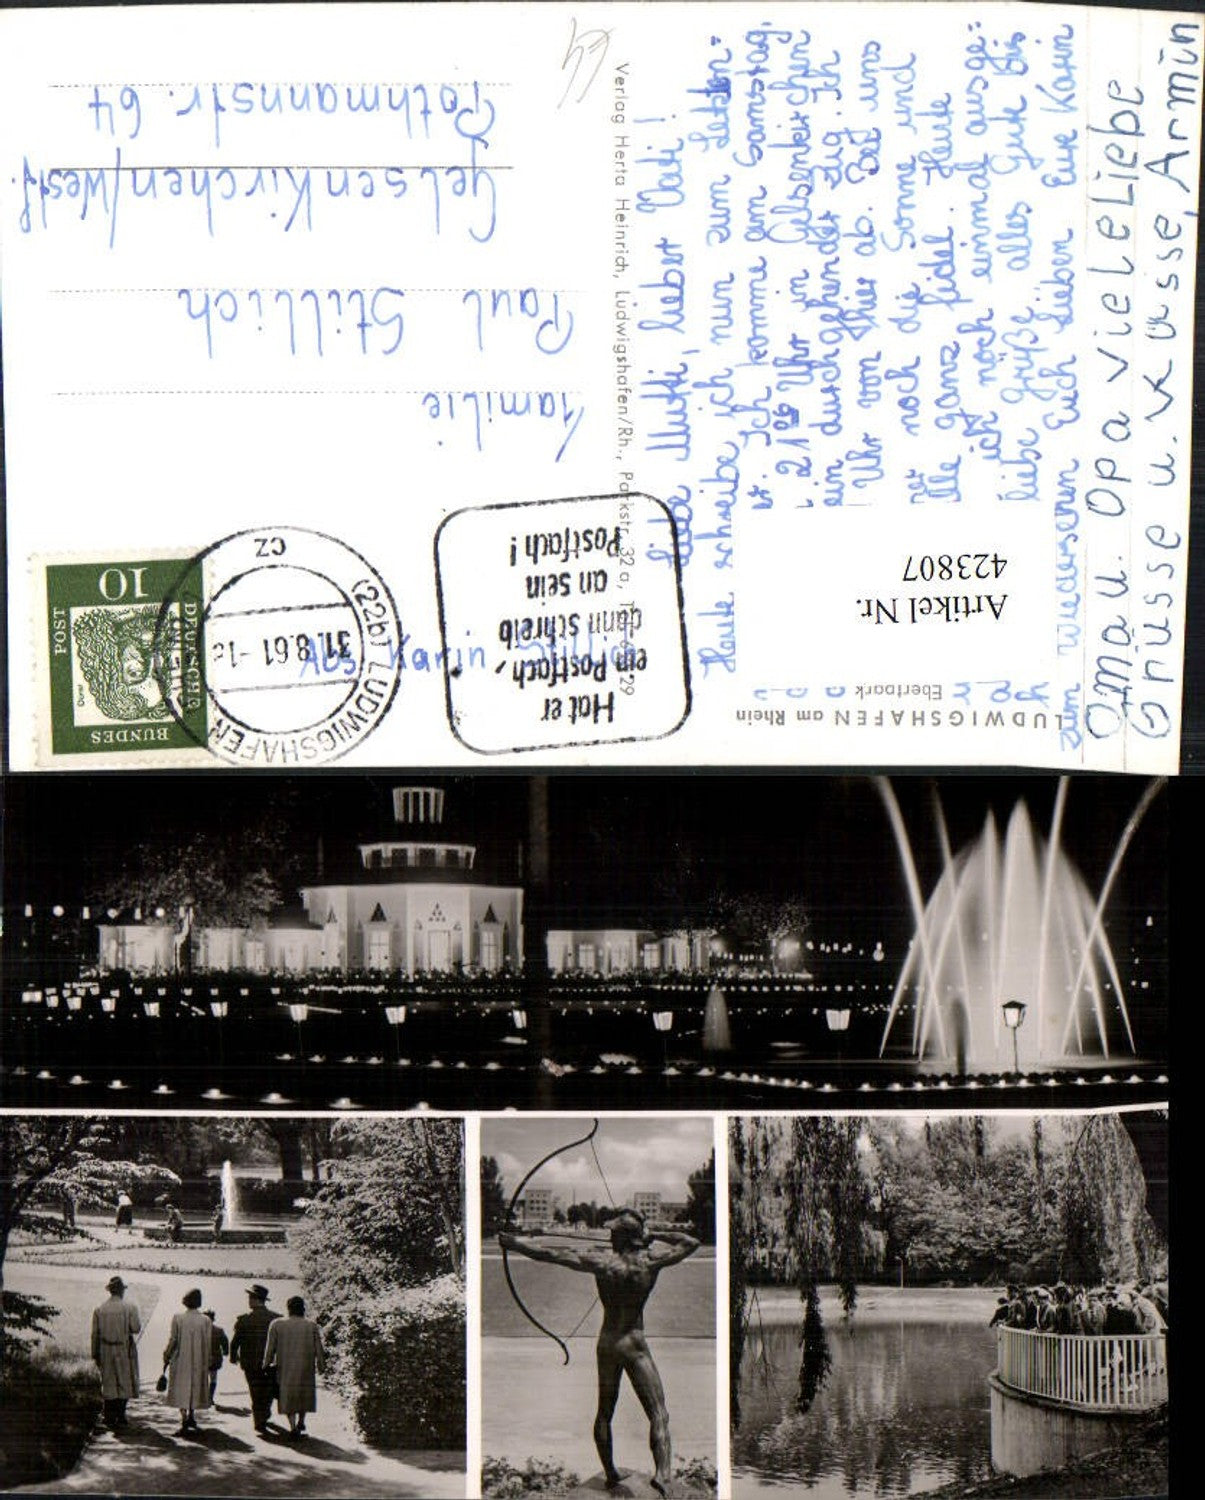 LUDWIGSHAFEN am Rhein
Ebertpark
Artikel Nr.
423807
Liebe Mutti, lieber Vati!
Heute schreibe ich nun zum letzten=
Ich komme am Samstag,
21 Uhr in Gelsenkirchen
ein durchgehender Zug. Ich
Uhr von hier ab. Bei uns
noch die Sonne und
ganz fidel. Heute
ich noch einmal ausge=
liebe Grüße, alles Gute Bis
zum Wiedersehen Euch lieben Eure Karin
Oma u. Opa viele Liebe
Grüsse u. Küsse, Armin
Verlag Herta Heinrich, Ludwigshafen/Rh., Parkstr. 32a
Hat er
ein Postfach,
dann schreib
an sein
Postfach!
(22b) LUDWIGSHAFEN
31.8.61
CZ
DEUTSCHE
BUNDES
POST
10
Dürer
Abs. Karin
Familie
Paul Stillich
Gelsenkirchen/Westf.
Pothmannstr. 64